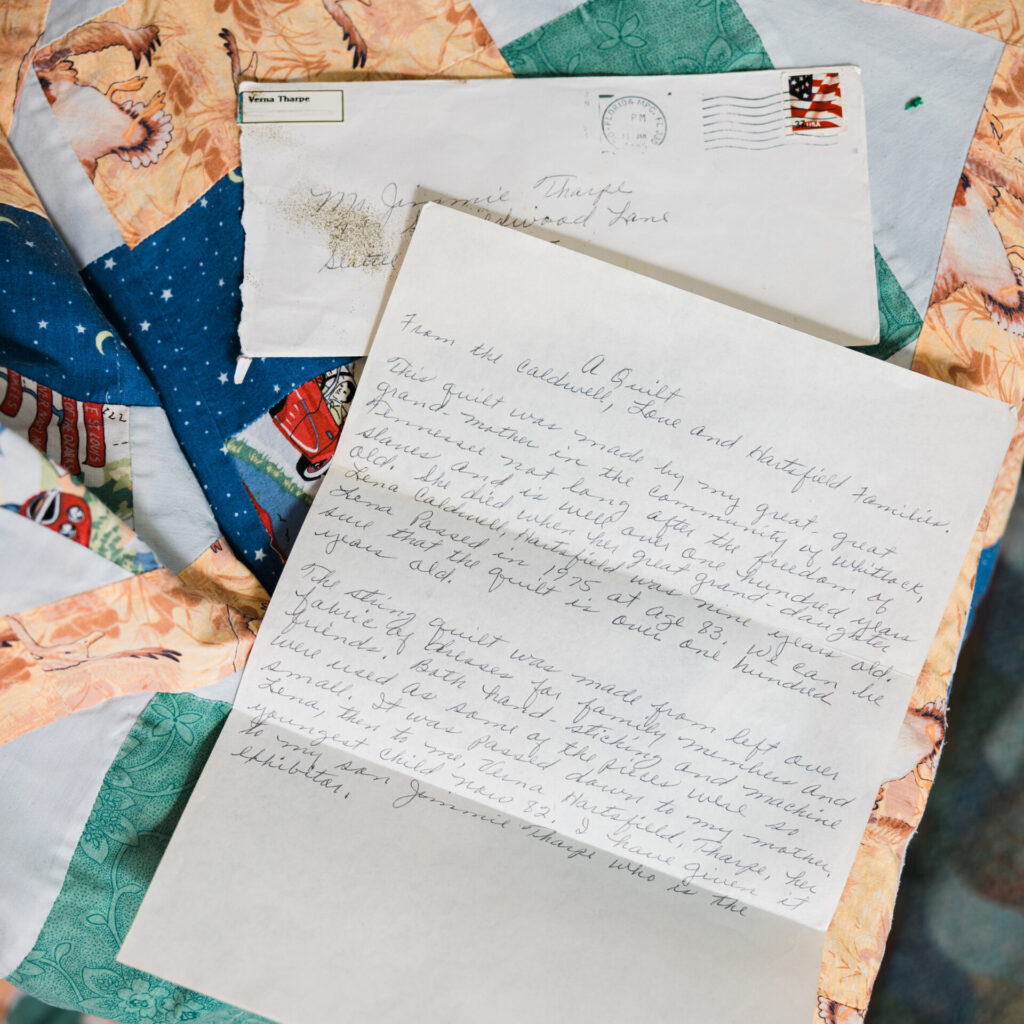 Verna Tharpe
FLORIDA MPC FL
PM
JAN
USA
Mr. Jimmie Tharpe
wood Lane
Seattle
A Quilt
From the Caldwell, Love and Hartsfield Families.
This quilt was made by my great-great
grand-mother in the community of Whitlock,
Tennessee not long after the freedom of
slaves and is well over one hundred years
old. She died when her great grand-daughter
Lena Caldwell, Hartsfield was nine years old.
Lena Passed in 1975 at age 83. We can be
sure that the quilt is over one hundred
years old.
The string quilt was made from left over
fabric of dresses for family members and
friends. Both hand-sticking and machine
were used as some of the pieces were so
small. It was passed down to my mother,
Lena, then to me, Verna Hartsfield, Tharpe, her
youngest child now 82. I have given it
to my son Jimmie Tharpe who is the
exhibitor.
ST. LOUIS